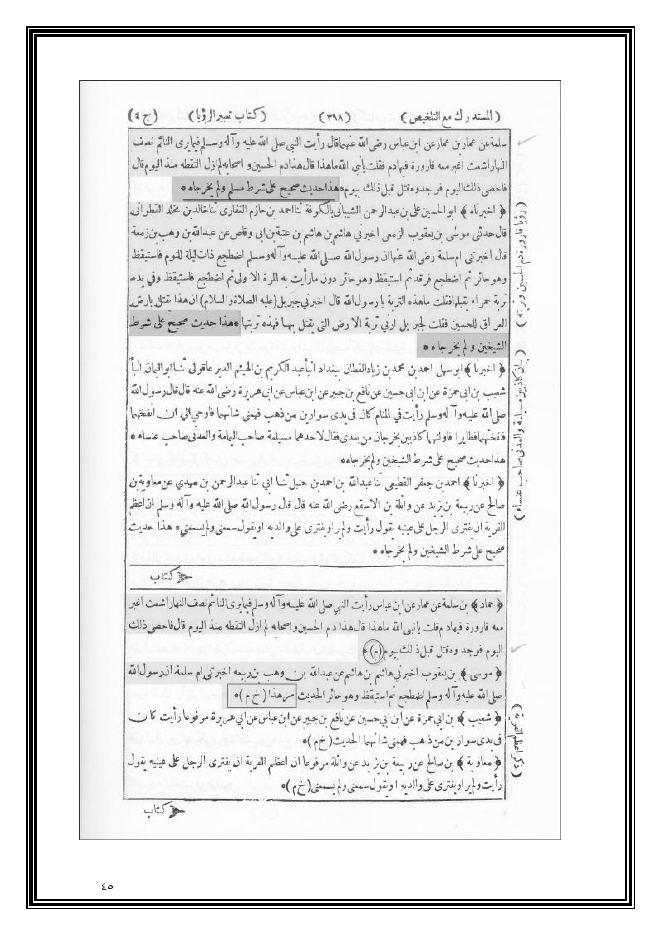 ( المستدرك مع التلخيص ) ( ٣٩٨ ) ( كتاب تعبير الرؤيا ) ( ج ٤ )
سلمة عن عمار بن عمار عن ابن عباس رضى الله عنهما قال رأيت النبى صلى الله عليه وآله وسلم فيما يرى النائم نصف
النهار اشعث اغبر معه قارورة فيها دم فقلت يا نبى الله ما هذا قال هذا دم الحسين واصحابه لم ازل التقطه منذ اليوم قال
فاحصى ذلك اليوم فوجدوه قتل قبل ذلك بيوم * هذا حديث صحيح على شرط مسلم ولم يخرجاه *
﴿ اخبرناه ﴾ ابو الحسين على بن عبد الرحمن الشيبانى بالكوفة ثنا احمد بن حازم الغفارى ثنا خالد بن مخلد القطوانى
قال حدثنى موسى بن يعقوب الزمعى اخبرنى هاشم بن هاشم بن عتبة بن ابى وقاص عن عبد الله بن وهب بن زمعة
قال اخبرتنى ام سلمة رضى الله عنها ان رسول الله صلى الله عليه وآله وسلم اضطجع ذات ليلة للنوم فاستيقظ
وهو حائر ثم اضطجع فرقد ثم استيقظ وهو حائر دون ما رأيت به المرة الاولى ثم اضطجع فاستيقظ وفى يده
تربة حمراء يقبلها فقلت ما هذه التربة يا رسول الله قال اخبرنى جبريل ( عليه الصلاة والسلام ) ان هذا يقتل بارض
العراق للحسين فقلت لجبريل ارنى تربة الارض التى يقتل بها فهذه تربتها * هذا حديث صحيح على شرط
الشيخين ولم يخرجاه *
﴿ اخبرنا ﴾ ابو سهل احمد بن محمد بن زياد القطان ببغداد انبأ عبد الكريم بن الهيثم الدير عاقولى ثنا ابو اليمان انبأ
شعيب بن ابى حمزة عن ابن ابى حسين عن نافع بن جبير عن ابن عباس عن ابى هريرة رضى الله عنه قال قال رسول الله
صلى الله عليه وآله وسلم رأيت فى المنام كان فى يدى سوارين من ذهب فهمنى شأنهما فاوحى الى ان انفخهما
فنفختهما فطارا فاولتهما كاذبين يخرجان من بعدى فقال لاحدهما مسيلمة صاحب اليمامة والعنسى صاحب صنعاء *
هذا حديث صحيح على شرط الشيخين ولم يخرجاه *
﴿ اخبرنا ﴾ احمد بن جعفر القطيعى ثنا عبد الله بن احمد بن حنبل ثنا ابى ثنا عبد الرحمن بن مهدى عن معاوية بن
صالح عن ربيعة بن يزيد عن واثلة بن الاسقع رضى الله عنه قال قال رسول الله صلى الله عليه وآله وسلم ان اعظم
الفرية ان يفترى الرجل على عينيه يقول رأيت ولم ير او يفترى على والديه او يقول سمعنى ولم يسمعنى * هذا حديث
صحيح على شرط الشيخين ولم يخرجاه *
كتاب
﴿ حماد ﴾ بن سلمة عن عمار عن ابن عباس رأيت النبى صلى الله عليه وآله وسلم فيما يرى النائم نصف النهار اشعث اغبر
معه قارورة فيها دم قلت يا نبى الله ما هذا قال هذا دم الحسين واصحابه لم ازل التقطه منذ اليوم قال فاحصى ذلك
اليوم فوجدوه قتل قبل ذلك بيوم ( م ) *
﴿ موسى ﴾ بن يعقوب اخبرنى هاشم بن هاشم عن عبد الله بن وهب بن ربيعه اخبرتنى ام سلمة ان رسول الله
صلى الله عليه وآله وسلم اضطجع ثم استيقظ وهو حائر الحديث مر هذا ( خ م ) *
﴿ شعيب ﴾ بن ابى حمزة عن ابن ابى حسين عن نافع بن جبير عن ابن عباس عن ابى هريرة مرفوعا رأيت كان
فى يدى سوارين من ذهب فهمنى شأنهما الحديث ( خ م ) *
﴿ معاوية ﴾ بن صالح عن ربيعة بن يزيد عن واثلة مرفوعا ان اعظم الفرية ان يفترى الرجل على عينيه يقول
رأيت ولم ير او يفترى على والديه او يقول سمعنى ولم يسمعنى ( خ م ) *
كتاب
٤٥